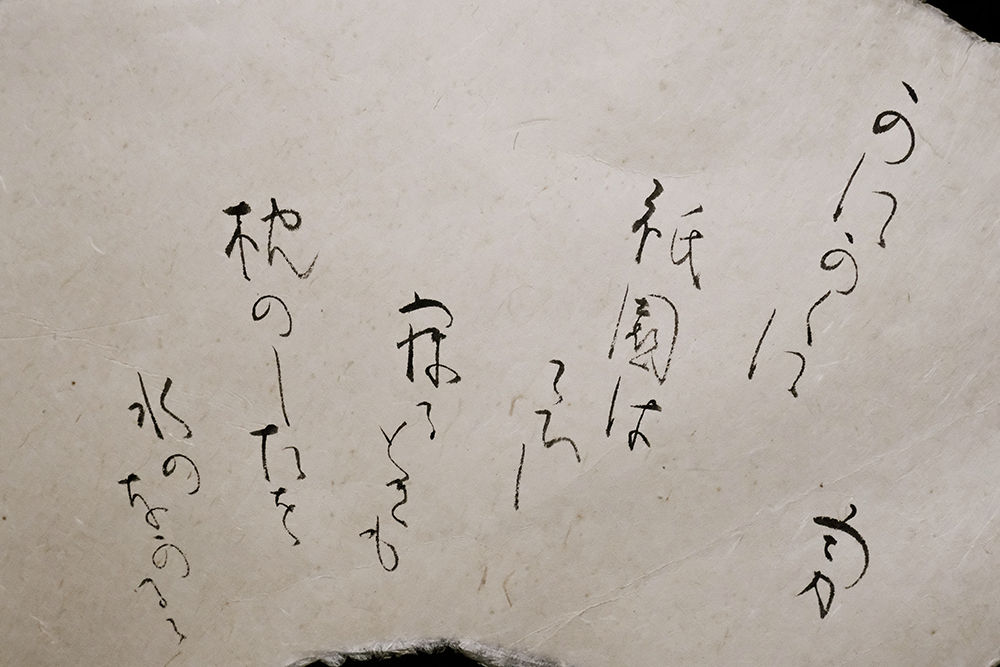 かにかくに
祇園は
こひし
寐るときも
枕のしたを
水のながるる
勇